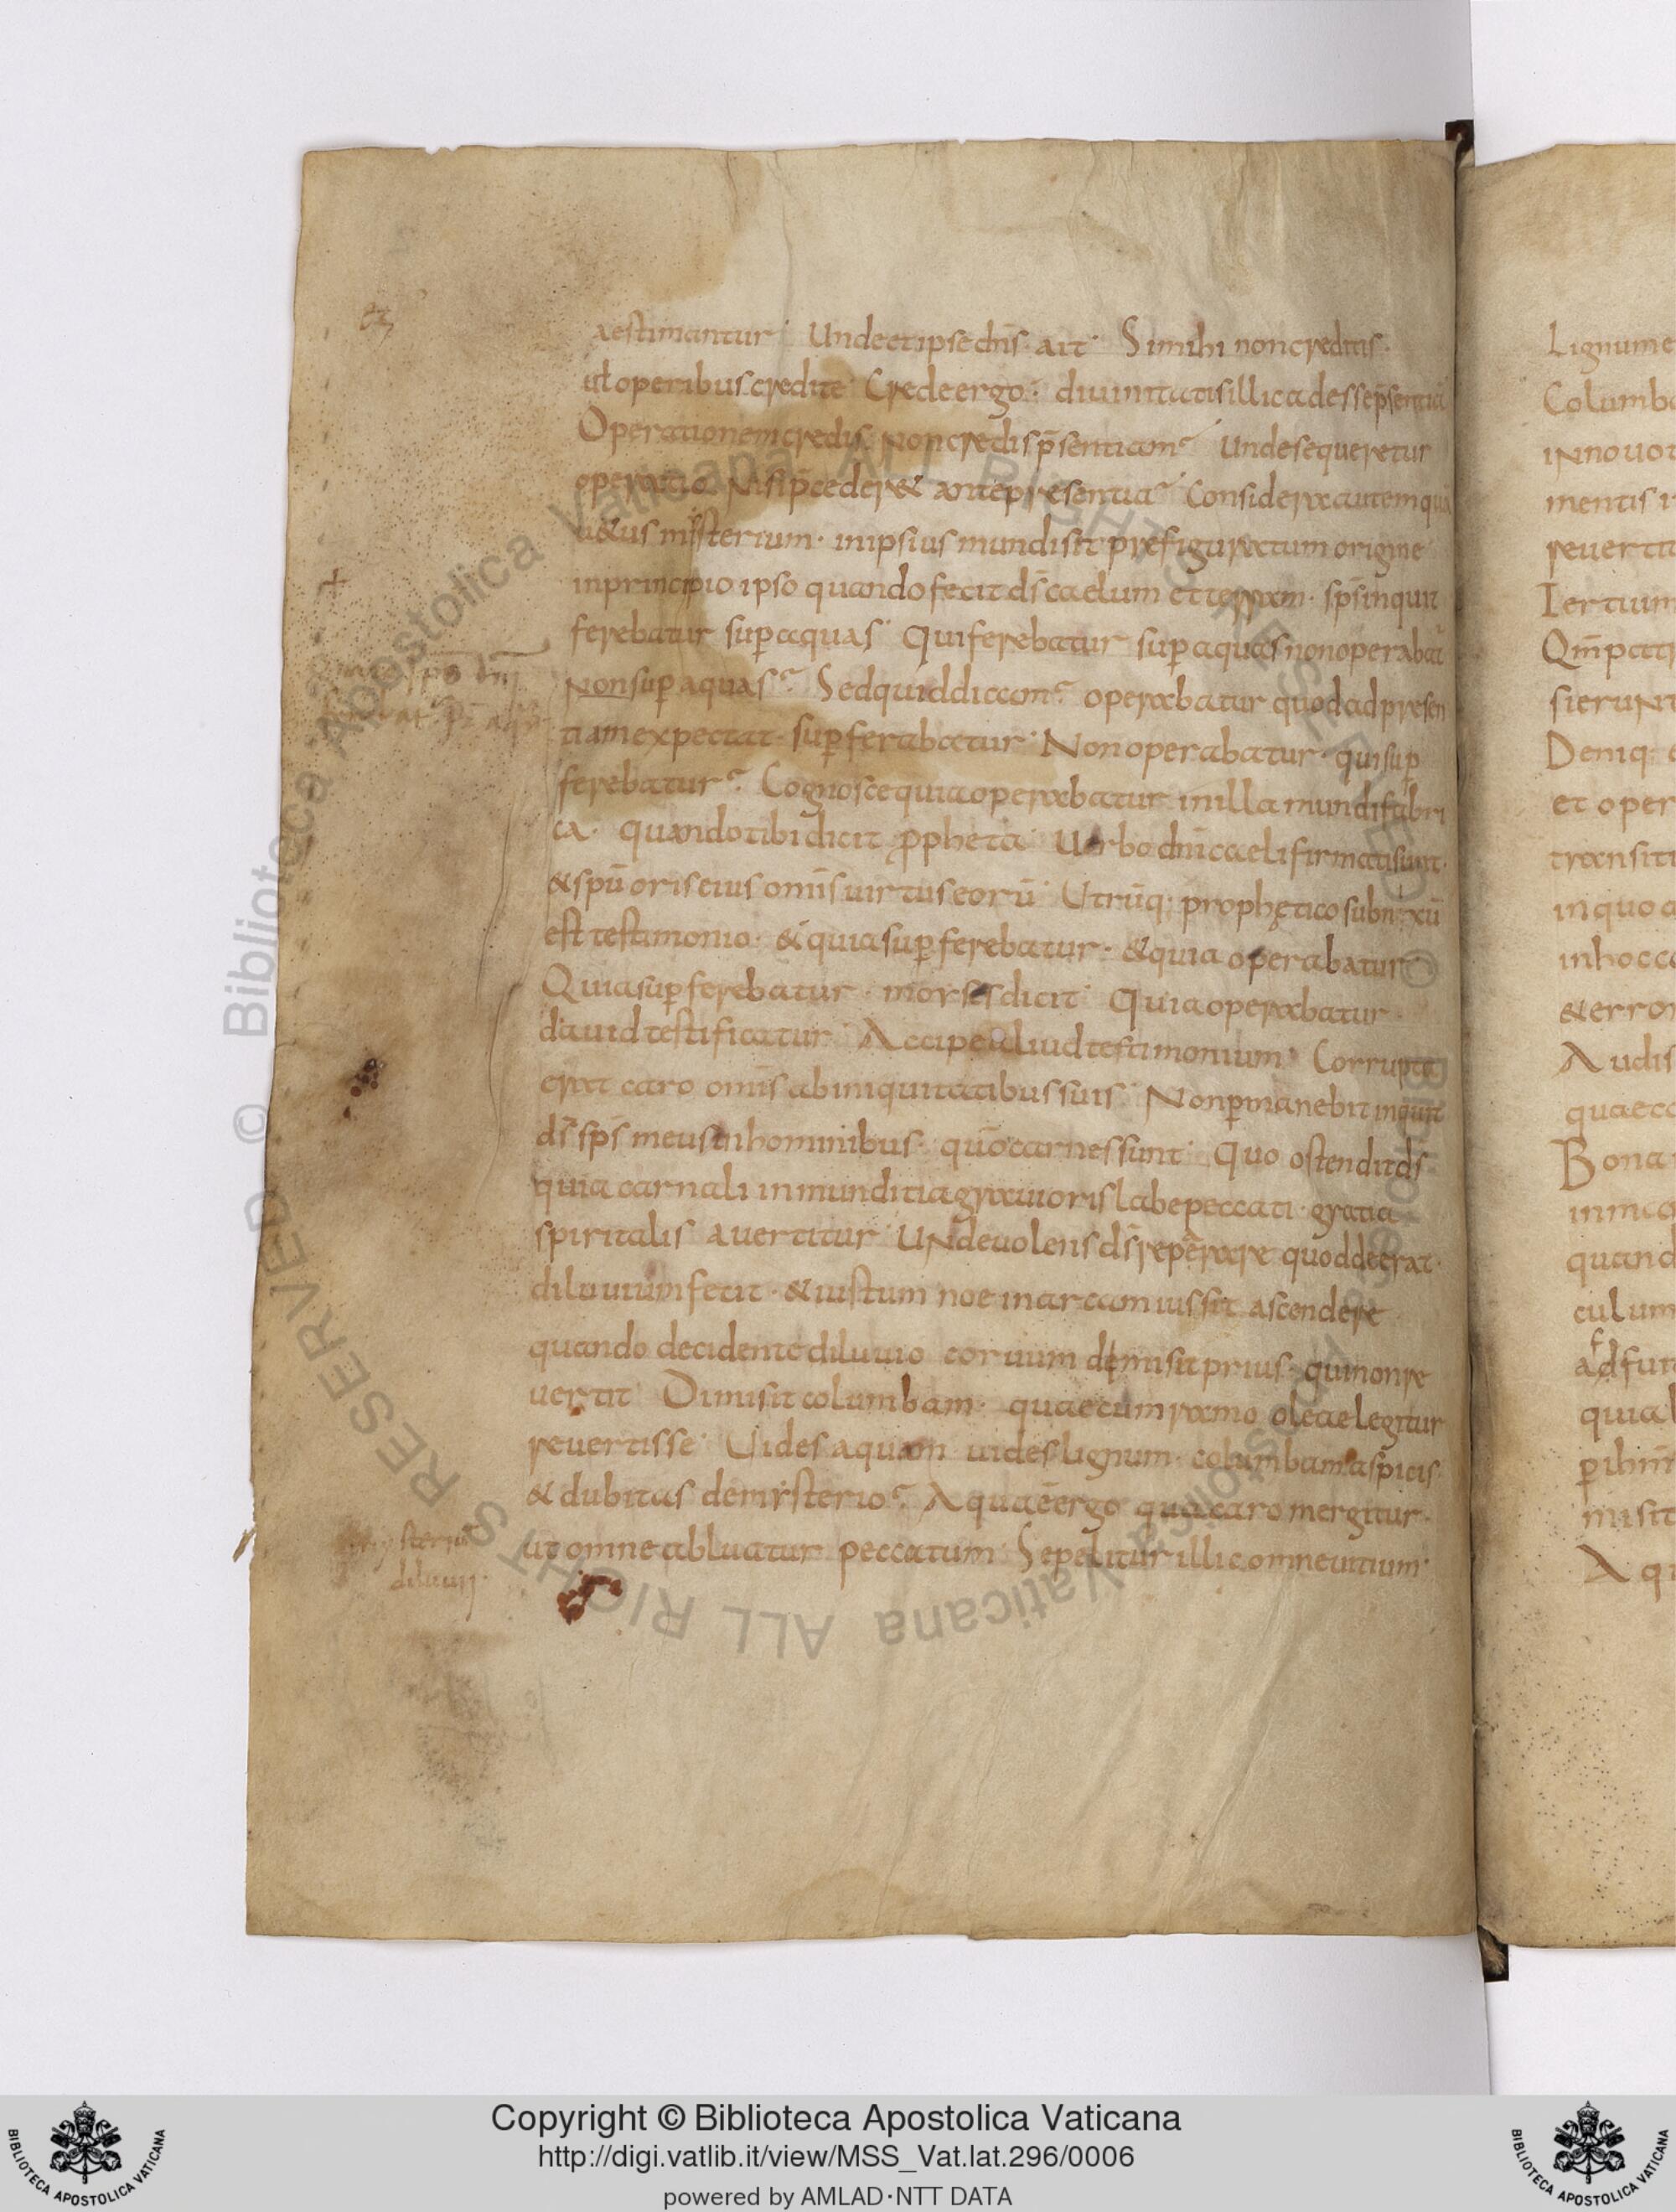 aestimantur Unde et ipse dn̄s ait Si mihi non creditis
uel operibus credite Crede ergo diuinitatis illic adesse p̄sentiā
Operationem credis non credis p̄sentiam Unde sequeretur
operatio Nisi p̄ceder& ante presentia Considera autem quā
u&us misterium in ipsius mundi sit prefiguratum origine
in principio ipso quando fecit ds̄ caelum et terram sps̄ inquit
ferebatur sup̱ aquas Qui ferebatur sup̱ aquas non operabat
Non sup̱ aquas Sed quid dicam operabatur quod ad presen
tiam expectat sup̱ferabatur Non operabatur qui sup̱
ferebatur Cognosce quia operabatur in illa mundi fabri
ca quando tibi dicit p̱pheta Uerbo dn̄i caeli firmati sunt
& spū oris eius omīs uirtus eorū Utrūq; prophetico subnixū
est testimonio & quia sup̱ferebatur & quia operabatur
Quia sup̱ferebatur moyses dicit Quia operabatur
dauid testificatur Accipe aliud testimonium Corrupta
erat caro omīs ab iniquitatibus suis Non p̱manebit inquit
ds̄ sps̄ meus in hominibus quō carnes sunt Quo ostendit ds̄
quia carnali inmunditia grauioris labe peccati gratia
spiritalis auertitur Unde uolens ds̄ reparare quod deerat
diluuium fecit & iustum noe in arcam iussit ascendere
quando decidente diluuio coruum demisit prius qui non re
uertit Dimisit columbam quae cum ramo oleae legitur
reuertisse Uides aquam uides lignum columbam aspicis
& dubitas de mysterio Aqua ē ergo qua caro mergitur
ut omne abluatur peccatum Sepelitur illic omne uitium
mysteriū
diluuij
Lignum e
Columba
in nouo t
mentis i
reuertit
Iertium
Qm̄ patr
sierunt
Deniq; e
et oper
transiti
in quo a
in hoc c
& error
Audis
quae co
Bona
in m
quand
culum
ad fun
quia l
p̱ ihm̄
misit
A qu
© Biblioteca Apostolica Vaticana ALL RIGHTS RESERVED
© Biblioteca Apostolica Vaticana ALL RIGHTS RESERVED
BIBLIOTECA APOSTOLICA VATICANA
Copyright © Biblioteca Apostolica Vaticana
http://digi.vatlib.it/view/MSS_Vat.lat.296/0006
powered by AMLAD·NTT DATA
BIBLIOTECA APOSTOLICA VATICANA